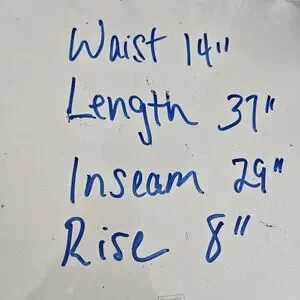 Waist 14"
Length 37"
Inseam 29"
Rise 8"